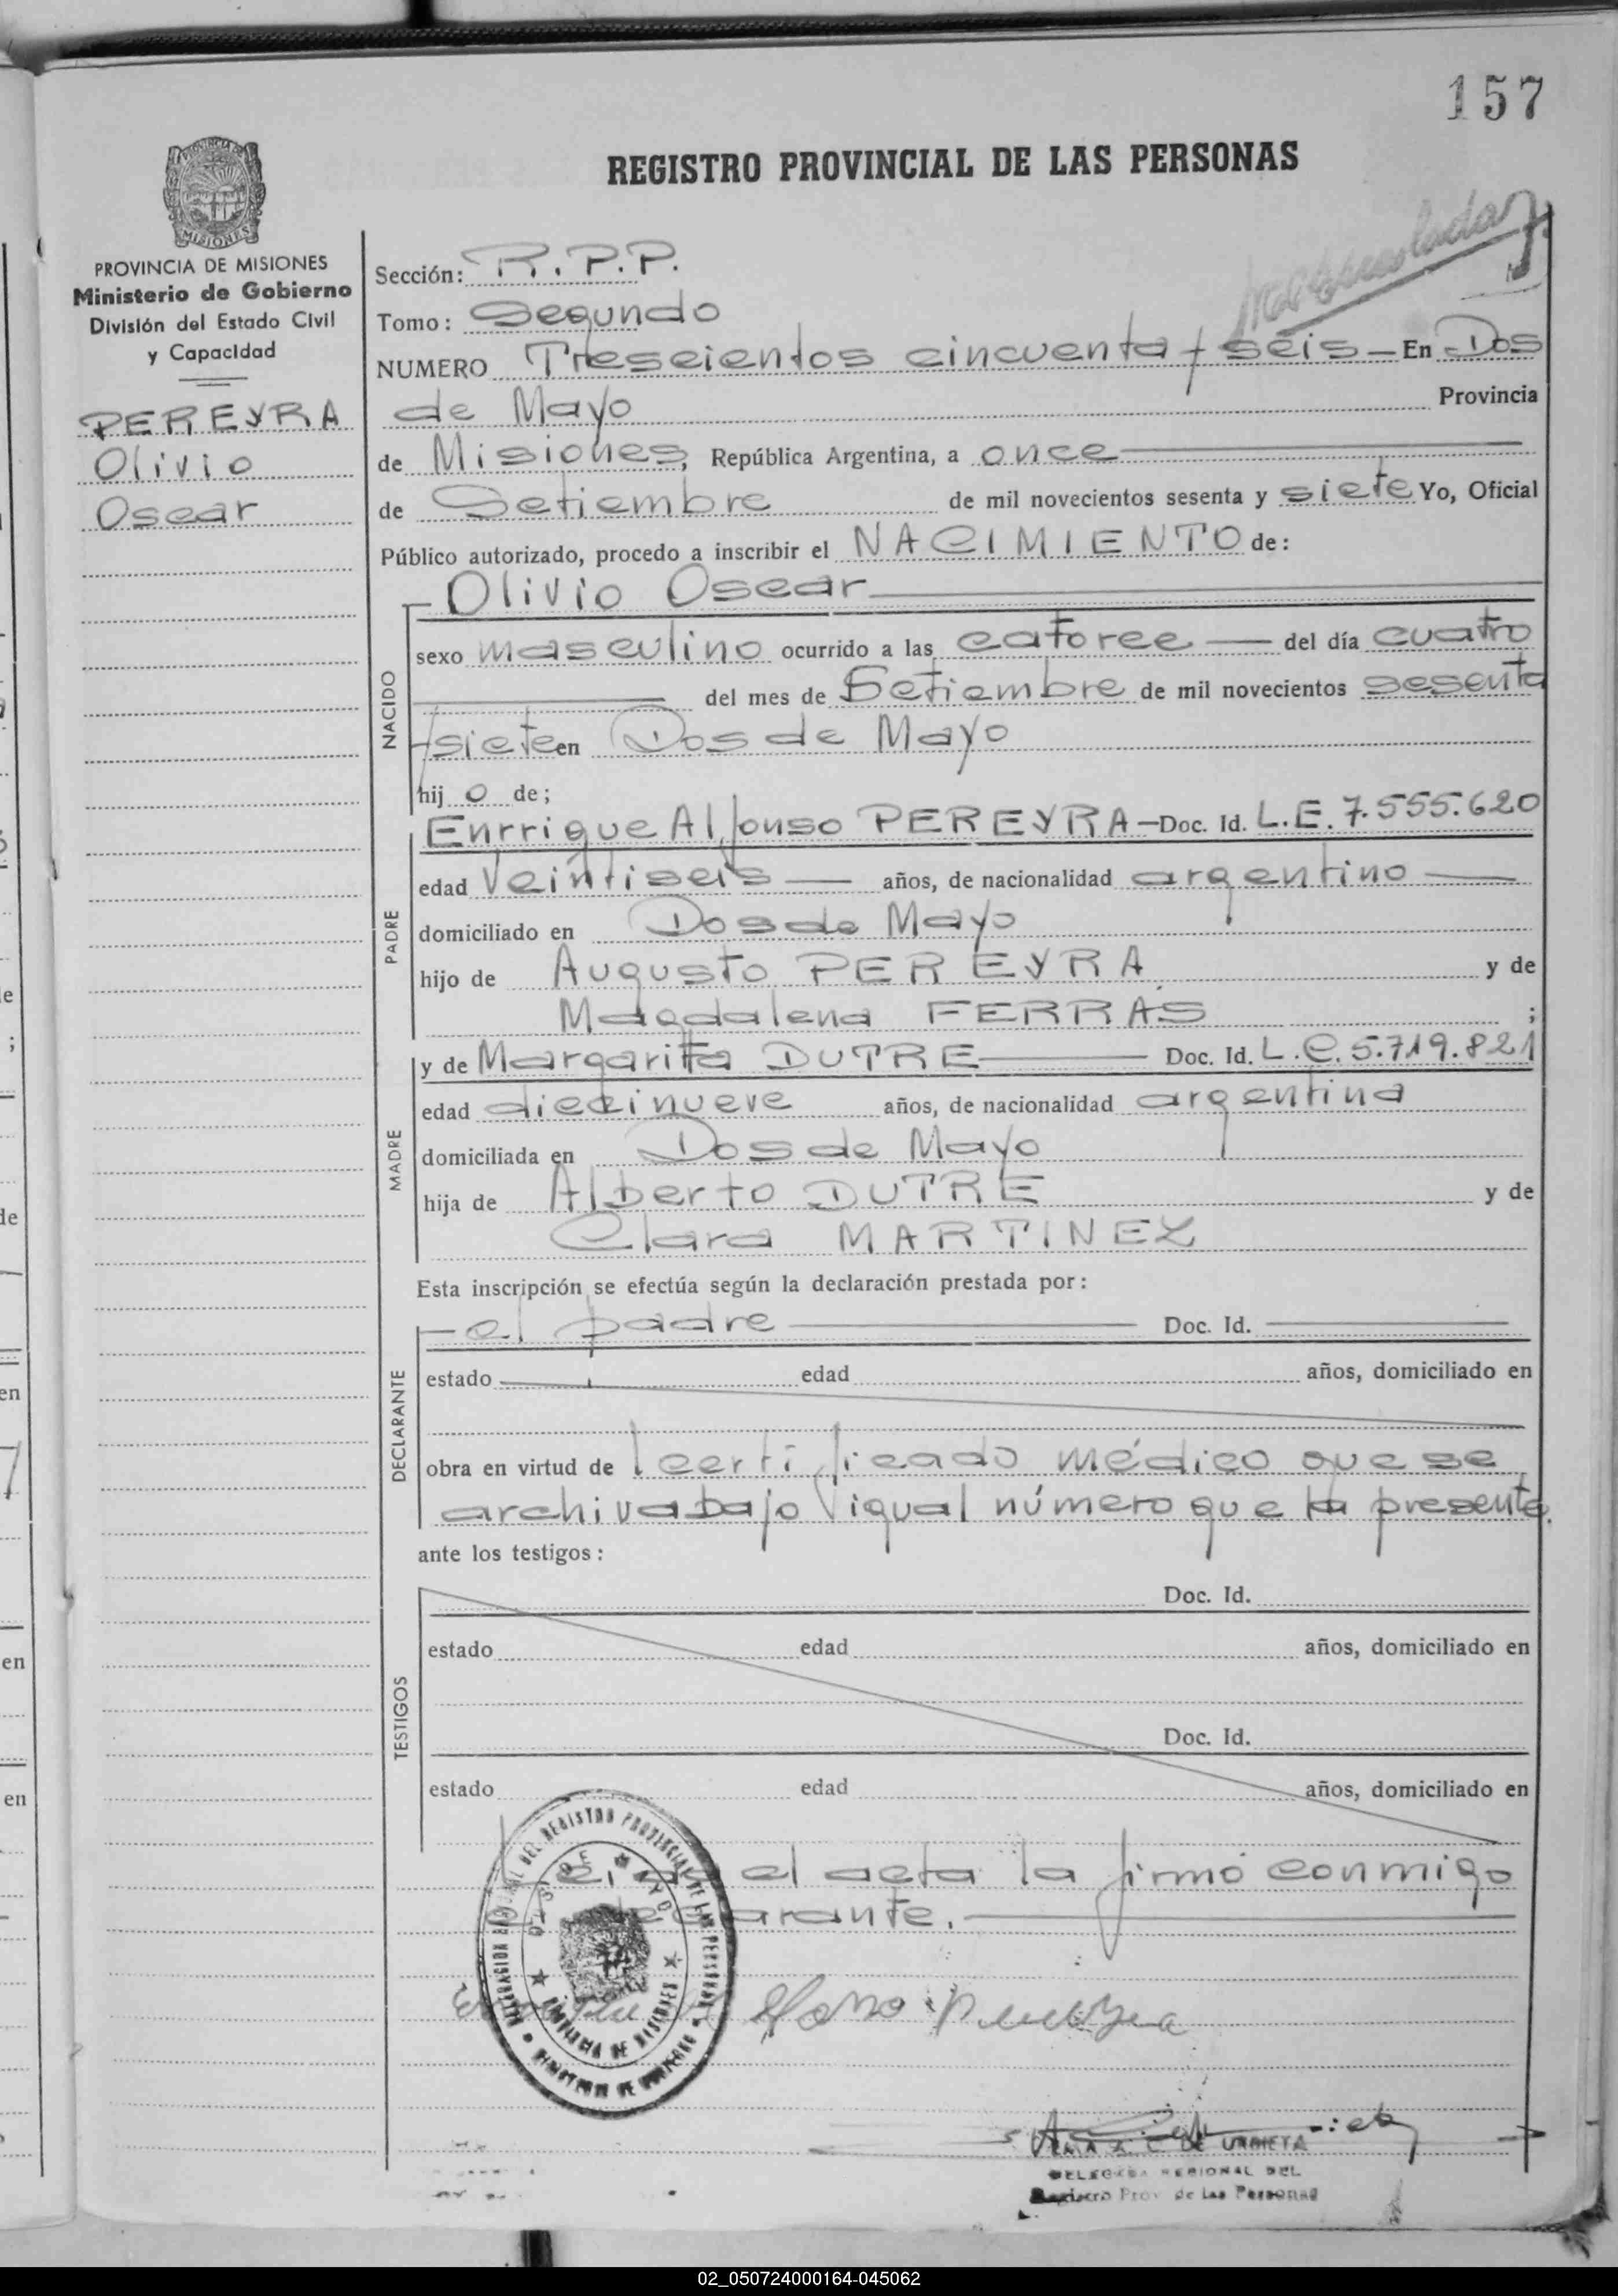 157
REGISTRO PROVINCIAL DE LAS PERSONAS
MISIONES
PROVINCIA DE MISIONES
Ministerio de Gobierno
División del Estado Civil
y Capacidad
PEREYRA
Olivio
Oscar
Sección: R.P.P.
Tomo: Segundo
NUMERO Trescientos cincuenta y seis — En Dos
de Mayo Provincia
de Misiones, República Argentina, a once
de Setiembre de mil novecientos sesenta y siete Yo, Oficial
Público autorizado, procedo a inscribir el NACIMIENTO de:
NACIDO
Olivio Oscar
sexo masculino ocurrido a las catorce — del día cuatro
del mes de Setiembre de mil novecientos sesenta
y siete en Dos de Mayo
hij o de;
PADRE
Enrrique Alfonso PEREYRA — Doc. Id. L.E. 7.555.620
edad Veintiseis — años, de nacionalidad argentino
domiciliado en Dos de Mayo
hijo de Augusto PEREYRA y de
Magdalena FERRAS ;
MADRE
y de Margarita DUTRE — Doc. Id. L.C. 5.719.821
edad diecinueve años, de nacionalidad argentina
domiciliada en Dos de Mayo
hija de Alberto DUTRE y de
Clara MARTINEZ
Esta inscripción se efectúa según la declaración prestada por:
DECLARANTE
— el padre — Doc. Id. —
estado edad años, domiciliado en
obra en virtud de certificado médico que se
archiva bajo igual número que la presente.
ante los testigos:
TESTIGOS
Doc. Id.
estado edad años, domiciliado en
Doc. Id.
estado edad años, domiciliado en
el acta la firmó conmigo
declarante.
Alfonso Pereyra
DE URBIETA
DELEGADA REGIONAL DEL
Registro Prov. de Las Personas
PROVINCIA DE MISIONES
02_050724000164-045062